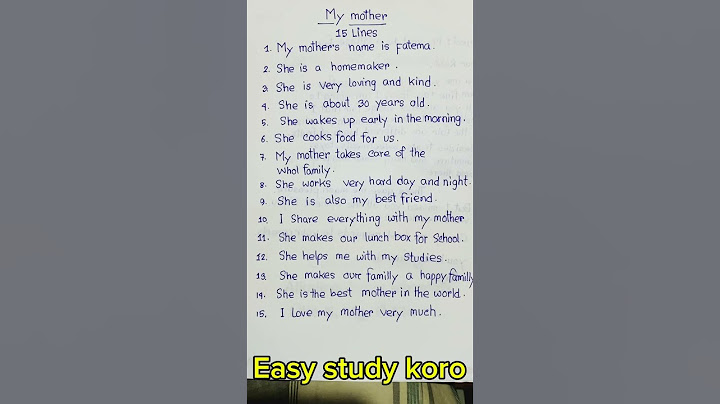 My mother
15 Lines
1. My mother's name is fatema.
2. She is a homemaker.
3. She is very loving and kind.
4. She is about 30 years old.
5. She wakes up early in the morning.
6. She cooks food for us.
7. My mother takes care of the
whol family.
8. She works very hard day and night.
9. She is also my best friend.
10. I Share everything with my mother
11. She makes our lunch box for School.
12. She helps me with my Studies.
13. She makes our familly a happy familly
14. She is the best mother in the world.
15. I Love my mother very much.
Easy study koro